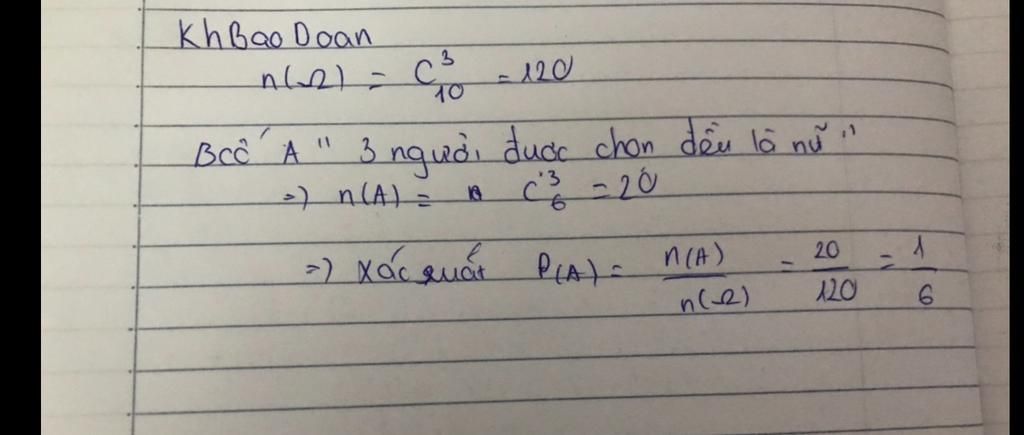 KhBaoDoan
n(Ω) = C³₁₀ = 120
Bcố A " 3 người được chọn đều là nữ "
=> n(A) = C³₆ = 20
=> Xác suất P(A) = n(A)/n(Ω) = 20/120 = 1/6